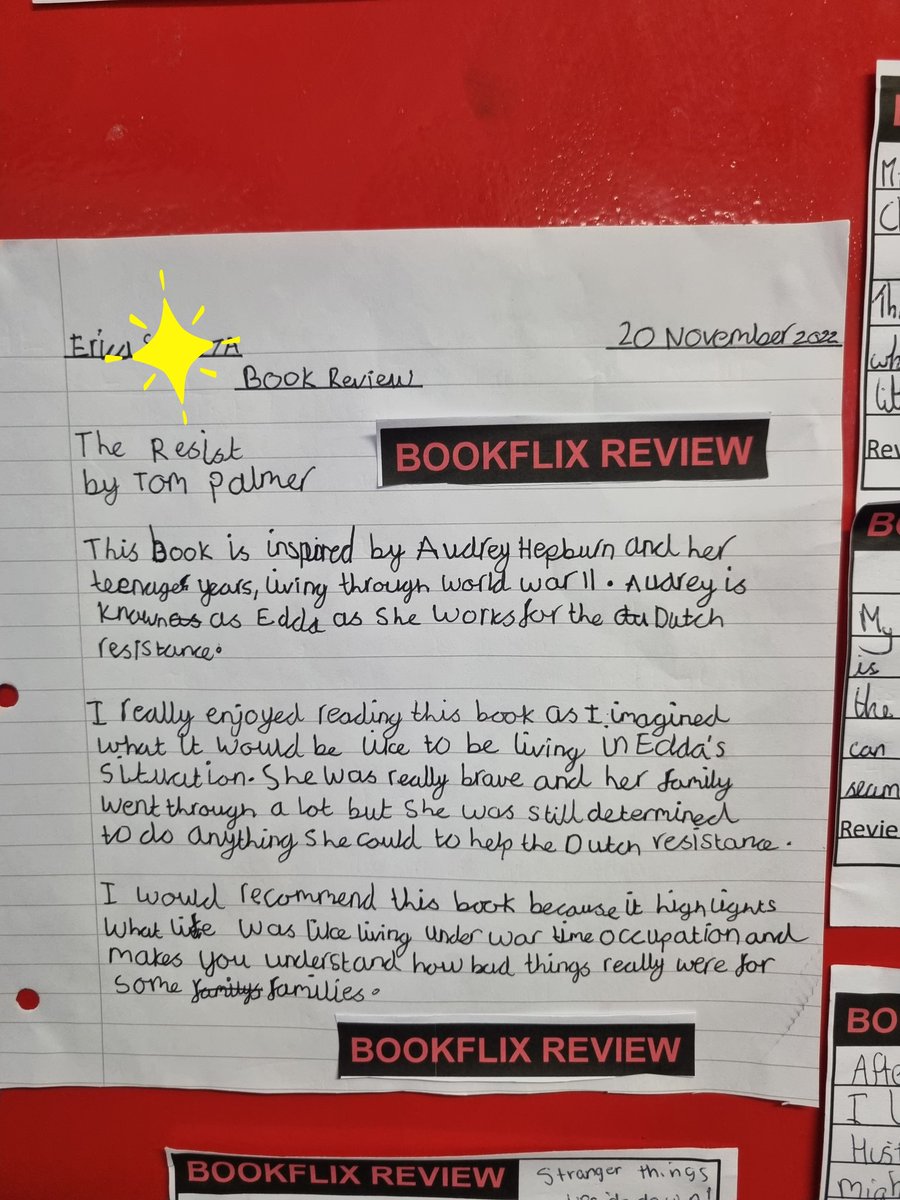 20 November 2022
Book Review
The Resist
by Tom Palmer
BOOKFLIX REVIEW
This Book is inspired by Audrey Hepburn and her
teenage years, living through world war II. Audrey is
known as Edda as she works for the Dutch
resistance.
I really enjoyed reading this book as I imagined
what it would be like to be living in Edda's
situation. She was really brave and her family
went through a lot but she was still determined
to do anything she could to help the Dutch resistance.
I would recommend this book because it highlights
what life was like living under war time occupation and
makes you understand how bad things really were for
some familys families.
BOOKFLIX REVIEW
BOOKFLIX REVIEW
Stranger things
My
is
the
can
Revie
BO
I